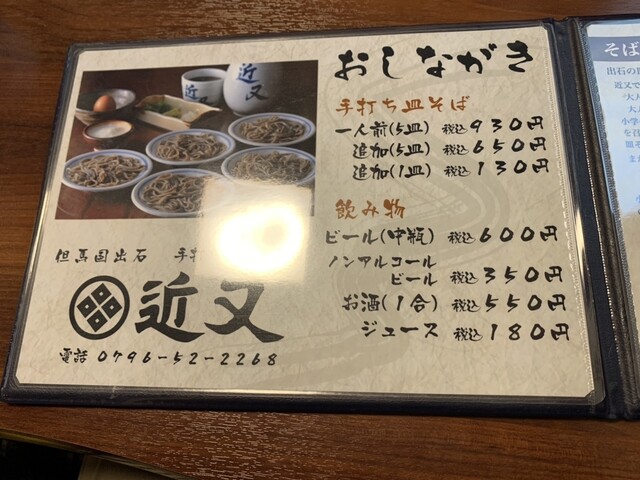 おしながき
手打ち皿そば
一人前(5皿) 税込 930円
追加(5皿) 税込 650円
追加(1皿) 税込 130円
飲み物
ビール(中瓶) 税込 600円
ノンアルコール
ビール 税込 350円
お酒(1合) 税込 550円
ジュース 税込 180円
近又
但馬国出石 手打
近又
電話 0796-52-2268
そば
出石の
近又で